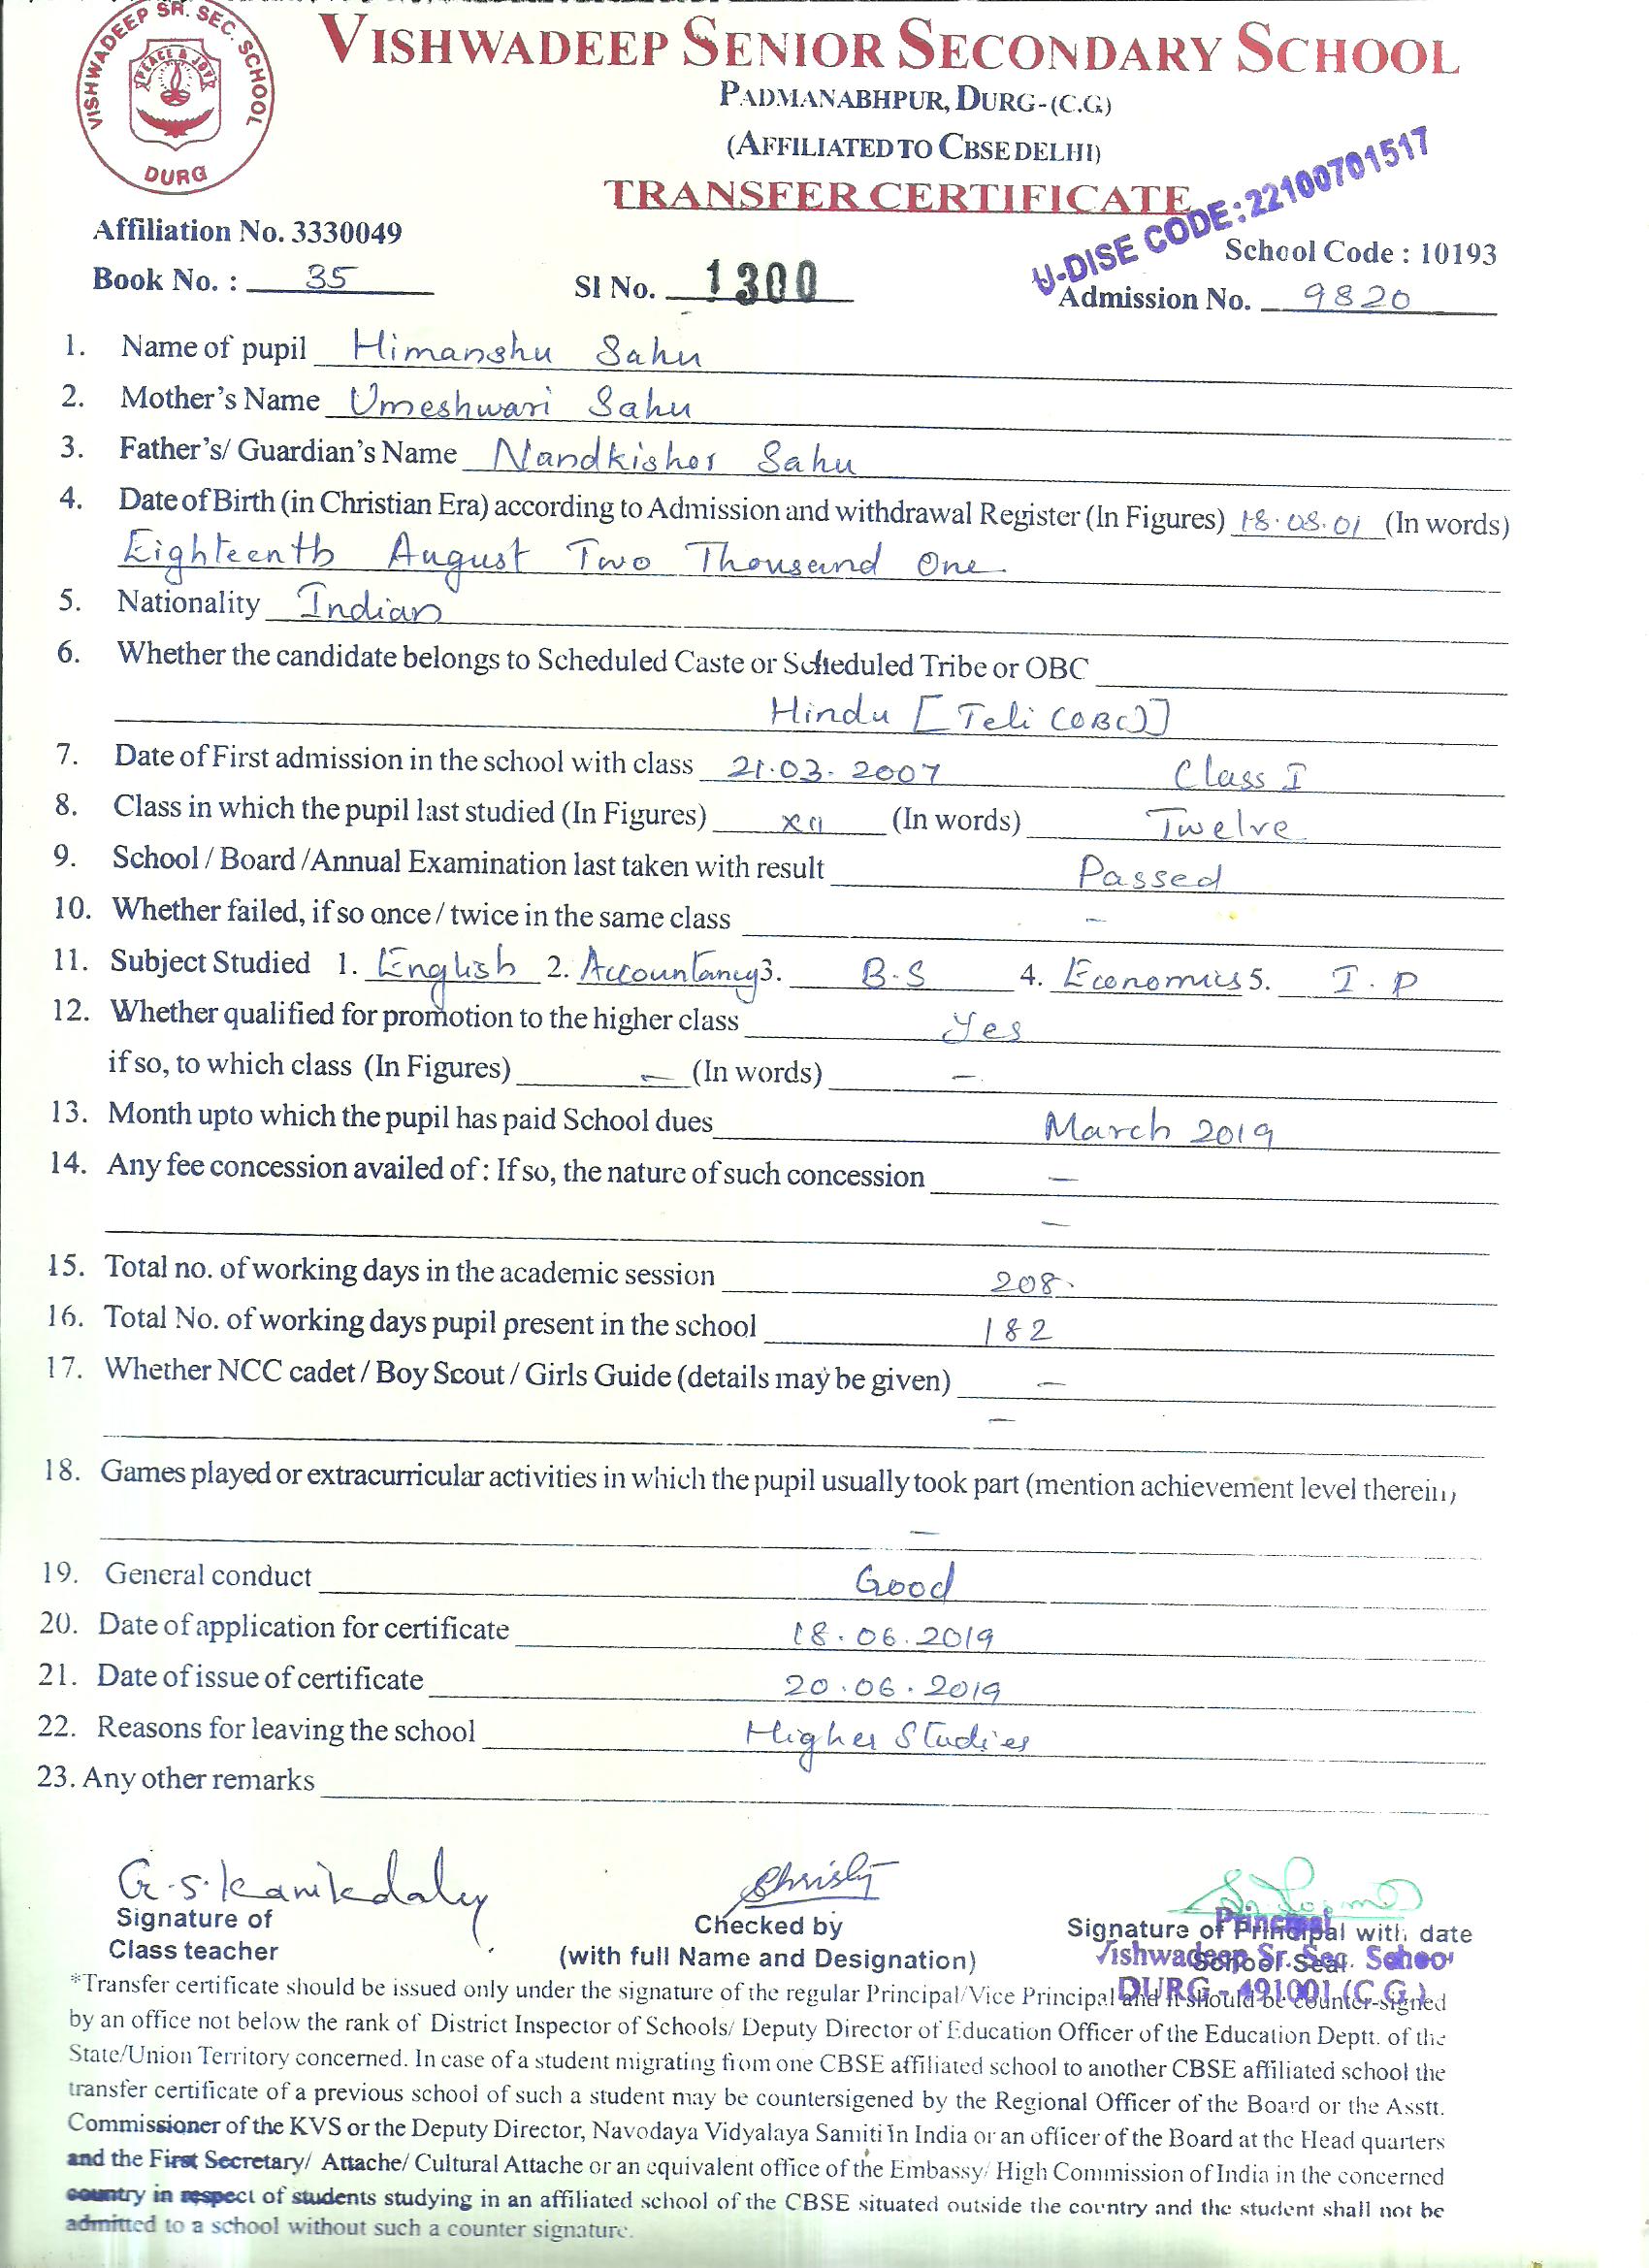 VISHWADEEP SR. SEC. SCHOOL
PEACE & JOY
DURG
VISHWADEEP SENIOR SECONDARY SCHOOL
PADMANABHPUR, DURG-(C.G)
(AFFILIATED TO CBSE DELHI)
TRANSFER CERTIFICATE
U-DISE CODE:22100701517
Affiliation No. 3330049
School Code : 10193
Book No. : 35 Sl No. 1300 Admission No. 9820
1. Name of pupil Himanshu Sahu
2. Mother's Name Umeshwari Sahu
3. Father's/ Guardian's Name Nandkishor Sahu
4. Date of Birth (in Christian Era) according to Admission and withdrawal Register (In Figures) 18.08.01 (In words)
Eighteenth August Two Thousand One.
5. Nationality Indian
6. Whether the candidate belongs to Scheduled Caste or Scheduled Tribe or OBC
Hindu [Teli (OBC)]
7. Date of First admission in the school with class 21.03.2007 Class I
8. Class in which the pupil last studied (In Figures) XII (In words) Twelve
9. School / Board /Annual Examination last taken with result Passed
10. Whether failed, if so once / twice in the same class –
11. Subject Studied 1. English 2. Accountancy 3. B.S 4. Economics 5. I.P
12. Whether qualified for promotion to the higher class Yes
if so, to which class (In Figures) – (In words) –
13. Month upto which the pupil has paid School dues March 2019
14. Any fee concession availed of : If so, the nature of such concession –
–
15. Total no. of working days in the academic session 208.
16. Total No. of working days pupil present in the school 182
17. Whether NCC cadet / Boy Scout / Girls Guide (details may be given) –
–
18. Games played or extracurricular activities in which the pupil usually took part (mention achievement level therein)
–
19. General conduct Good
20. Date of application for certificate 18.06.2019
21. Date of issue of certificate 20.06.2019
22. Reasons for leaving the school Higher Studies
23. Any other remarks
Christy
Signature of Class teacher
Checked by
(with full Name and Designation)
Signature of Principal with date
School Seal
Principal
Vishwadeep Sr. Sec. School
DURG - 491001 (C.G.)
*Transfer certificate should be issued only under the signature of the regular Principal/Vice Principal and it should be counter-signed
by an office not below the rank of District Inspector of Schools/ Deputy Director of Education Officer of the Education Deptt. of the
State/Union Territory concerned. In case of a student migrating from one CBSE affiliated school to another CBSE affiliated school the
transfer certificate of a previous school of such a student may be countersigened by the Regional Officer of the Board or the Asstt.
Commissioner of the KVS or the Deputy Director, Navodaya Vidyalaya Samiti in India or an officer of the Board at the Head quarters
and the First Secretary/ Attache/ Cultural Attache or an equivalent office of the Embassy/ High Commission of India in the concerned
country in respect of students studying in an affiliated school of the CBSE situated outside the country and the student shall not be
admitted to a school without such a counter signature.